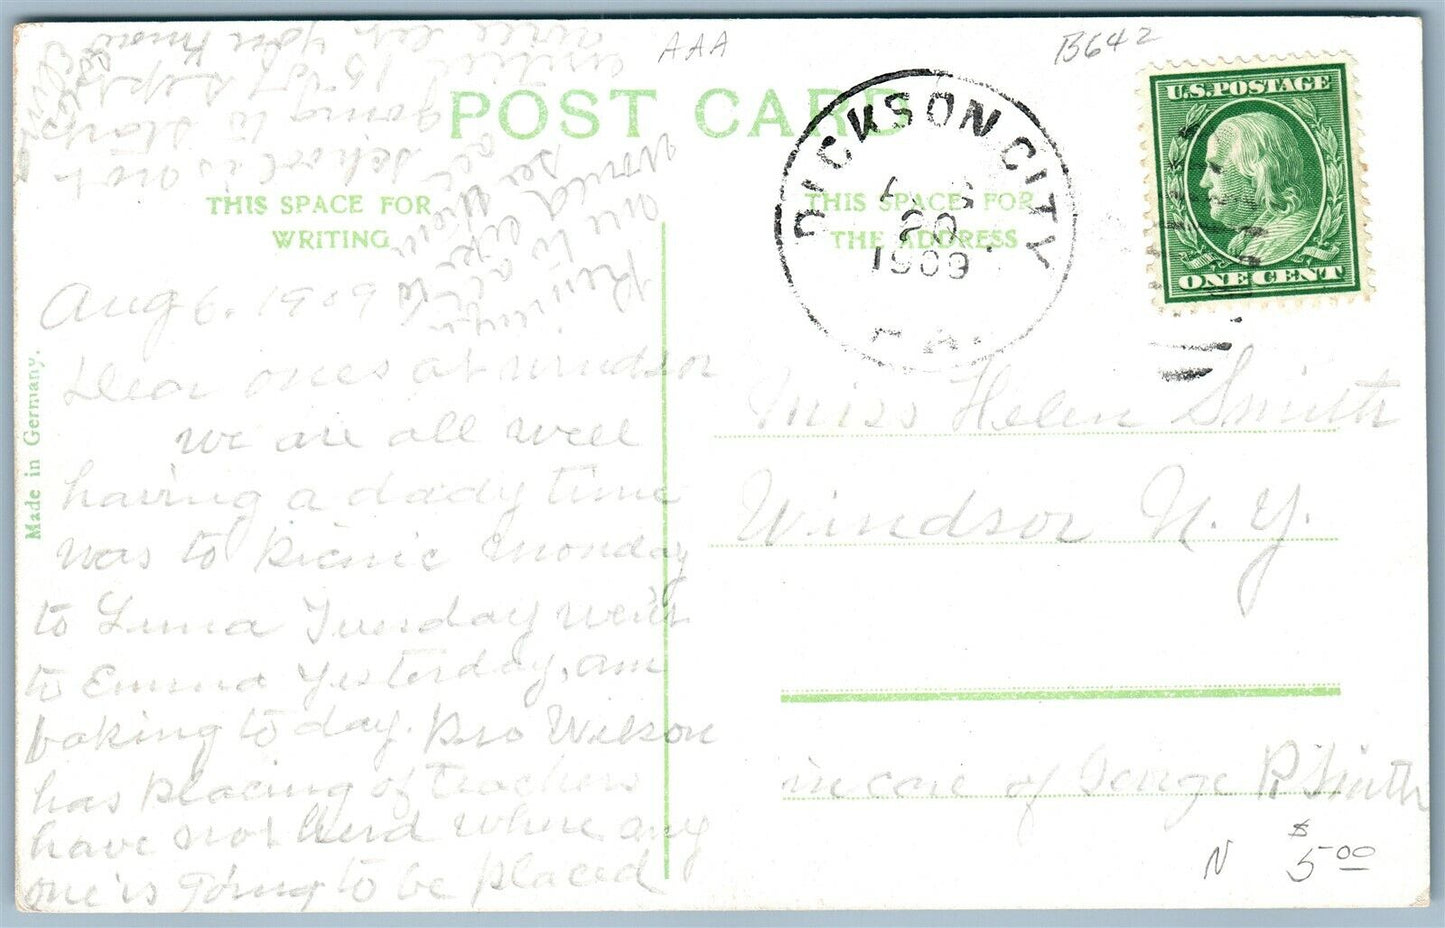 AAA
B642
U.S. POSTAGE
ONE CENT
POST CARD
DICKSON CITY
20
1909
PA.
THIS SPACE FOR
WRITING
THIS SPACE FOR
THE ADDRESS
Made in Germany.
Aug 6. 1909
Dear ones at Windsor
we are all well
having a dady time
was to Picnic Monday
to Luna Tuesday went
to Emma Yesterday, am
baking to day. Bro Wilson
has placing of teachers
have not herd where any
one is going to be placed
school is not
going to start
until 13 of Sep
will let you know
Miss Helen Smith
Windsor N. Y.
in care of George P. Smith
N $5.00